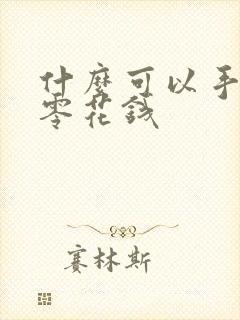 什麼可以手
零花錢
賽林斯